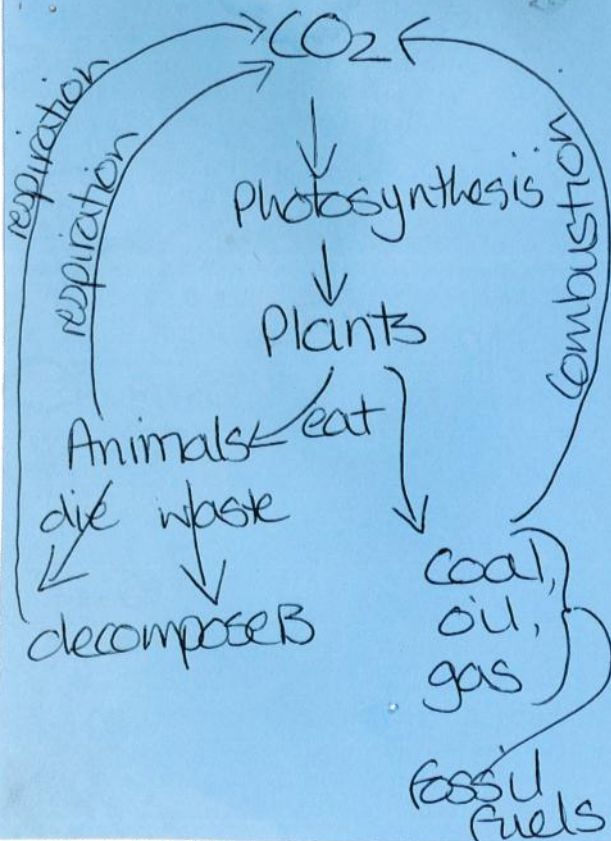 CO2
respiration
respiration
Combustion
Photosynthesis
Plants
Animals eat
die waste
decomposers
coal,
oil,
gas
fossil
fuels